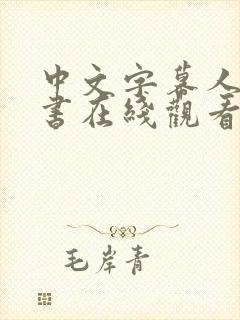 中文字幕人
书在线觀看
毛岸青